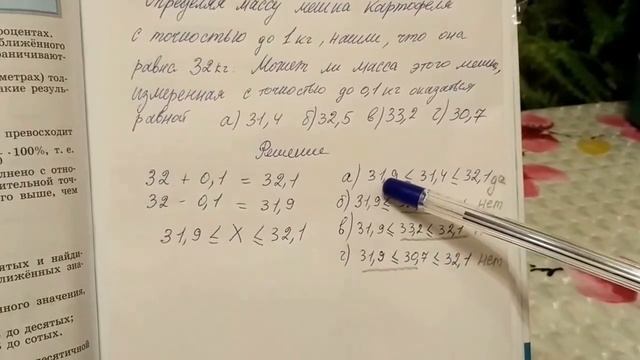 Определяя массу мешка картофеля
с точностью до 1 кг, нашли, что она
равна 32 кг. Может ли масса этого мешка,
измеренная с точностью до 0,1 кг оказаться
равной а) 31,4 б) 32,5 в) 33,2 г) 30,7
Решение
32 + 0,1 = 32,1
32 - 0,1 = 31,9
31,9 ≤ X ≤ 32,1
а) 31,9 ≤ 31,4 ≤ 32,1 да
б) 31,9 ≤ нет
в) 31,9 ≤ 33,2 ≤ 32,1
г) 31,9 ≤ 30,7 ≤ 32,1 нет
роцентах.
ближённого
раничивают-
метрах) тол-
акие резуль-
превосходит
· 100%, т. е.
полнено с отно-
ительной точ-
го выше, чем
ятых и найди-
ближённых зна-
нного значения,
до десятых;
до сотых.
десятичной